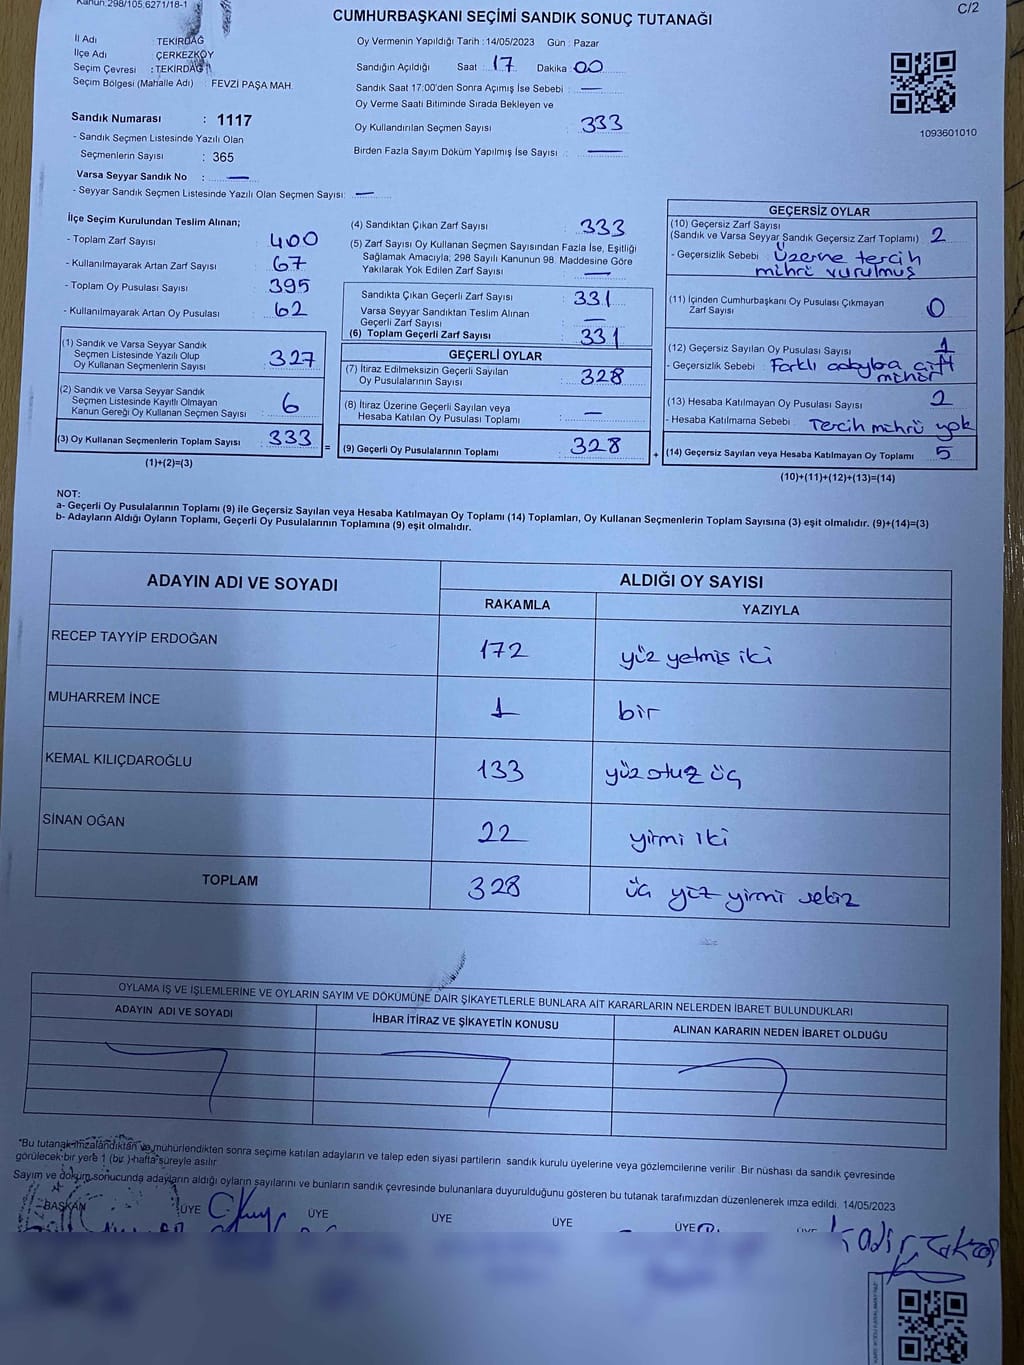 Kanun:298/105,6271/18-1
C/2
CUMHURBAŞKANI SEÇİMİ SANDIK SONUÇ TUTANAĞI
İl Adı TEKİRDAĞ
İlçe Adı ÇERKEZKÖY
Seçim Çevresi : TEKİRDAĞ
Seçim Bölgesi (Mahalle Adı) : FEVZİ PAŞA MAH.
Sandık Numarası : 1117
- Sandık Seçmen Listesinde Yazılı Olan
Seçmenlerin Sayısı : 365
Varsa Seyyar Sandık No : —
- Seyyar Sandık Seçmen Listesinde Yazılı Olan Seçmen Sayısı: —
Oy Vermenin Yapıldığı Tarih : 14/05/2023 Gün : Pazar
Sandığın Açıldığı Saat : 17 Dakika : 00
Sandık Saat 17:00'den Sonra Açımış İse Sebebi : —
Oy Verme Saati Bitiminde Sırada Bekleyen ve
Oy Kullandırılan Seçmen Sayısı : 333
Birden Fazla Sayım Döküm Yapılmış İse Sayısı : —
1093601010
İlçe Seçim Kurulundan Teslim Alınan;
- Toplam Zarf Sayısı : 400
- Kullanılmayarak Artan Zarf Sayısı : 67
- Toplam Oy Pusulası Sayısı : 395
- Kullanılmayarak Artan Oy Pusulası : 62
(1) Sandık ve Varsa Seyyar Sandık
Seçmen Listesinde Yazılı Olup
Oy Kullanan Seçmenlerin Sayısı : 327
(2) Sandık ve Varsa Seyyar Sandık
Seçmen Listesinde Kayıtlı Olmayan
Kanun Gereği Oy Kullanan Seçmen Sayısı : 6
(3) Oy Kullanan Seçmenlerin Toplam Sayısı : 333
(1)+(2)=(3)
=
(4) Sandıktan Çıkan Zarf Sayısı : 333
(5) Zarf Sayısı Oy Kullanan Seçmen Sayısından Fazla İse, Eşitliği
Sağlamak Amacıyla; 298 Sayılı Kanunun 98. Maddesine Göre
Yakılarak Yok Edilen Zarf Sayısı : —
Sandıkta Çıkan Geçerli Zarf Sayısı : 331
Varsa Seyyar Sandıktan Teslim Alınan
Geçerli Zarf Sayısı : —
(6) Toplam Geçerli Zarf Sayısı : 331
GEÇERLİ OYLAR
(7) İtiraz Edilmeksizin Geçerli Sayılan
Oy Pusulalarının Sayısı : 328
(8) İtiraz Üzerine Geçerli Sayılan veya
Hesaba Katılan Oy Pusulası Toplamı : —
(9) Geçerli Oy Pusulalarının Toplamı : 328
+
GEÇERSİZ OYLAR
(10) Geçersiz Zarf Sayısı
(Sandık ve Varsa Seyyar Sandık Geçersiz Zarf Toplamı) : 2
- Geçersizlik Sebebi : Üzerine tercih
mihrü vurulmuş
(11) İçinden Cumhurbaşkanı Oy Pusulası Çıkmayan
Zarf Sayısı : 0
(12) Geçersiz Sayılan Oy Pusulası Sayısı : 1
- Geçersizlik Sebebi : Farklı çift
(13) Hesaba Katılmayan Oy Pusulası Sayısı : 2
- Hesaba Katılmama Sebebi : Tercih mührü yok
(14) Geçersiz Sayılan veya Hesaba Katılmayan Oy Toplamı : 5
(10)+(11)+(12)+(13)=(14)
NOT:
a- Geçerli Oy Pusulalarının Toplamı (9) ile Geçersiz Sayılan veya Hesaba Katılmayan Oy Toplamı (14) Toplamları, Oy Kullanan Seçmenlerin Toplam Sayısına (3) eşit olmalıdır. (9)+(14)=(3)
b- Adayların Aldığı Oyların Toplamı, Geçerli Oy Pusulalarının Toplamına (9) eşit olmalıdır.
ADAYIN ADI VE SOYADI ALDIĞI OY SAYISI
RAKAMLA YAZIYLA
RECEP TAYYİP ERDOĞAN 172 yüz yetmiş iki
MUHARREM İNCE 1 bir
KEMAL KILIÇDAROĞLU 133 yüz otuz üç
SİNAN OĞAN 22 yirmi iki
TOPLAM 328 üç yüz yirmi sekiz
OYLAMA İŞ VE İŞLEMLERİNE VE OYLARIN SAYIM VE DÖKÜMÜNE DAİR ŞİKAYETLERLE BUNLARA AİT KARARLARIN NELERDEN İBARET BULUNDUKLARI
ADAYIN ADI VE SOYADI İHBAR İTİRAZ VE ŞİKAYETİN KONUSU ALINAN KARARIN NEDEN İBARET OLDUĞU
*Bu tutanak imzalandıktan ve mühürlendikten sonra seçime katılan adayların ve talep eden siyasi partilerin sandık kurulu üyelerine veya gözlemcilerine verilir. Bir nüshası da sandık çevresinde
görülecek bir yere 1 (bir) hafta süreyle asılır
Sayım ve döküm sonucunda adayların aldığı oyların sayılarını ve bunların sandık çevresinde bulunanlara duyurulduğunu gösteren bu tutanak tarafımızdan düzenlenerek imza edildi. 14/05/2023
BAŞKAN ÜYE ÜYE ÜYE ÜYE ÜYE